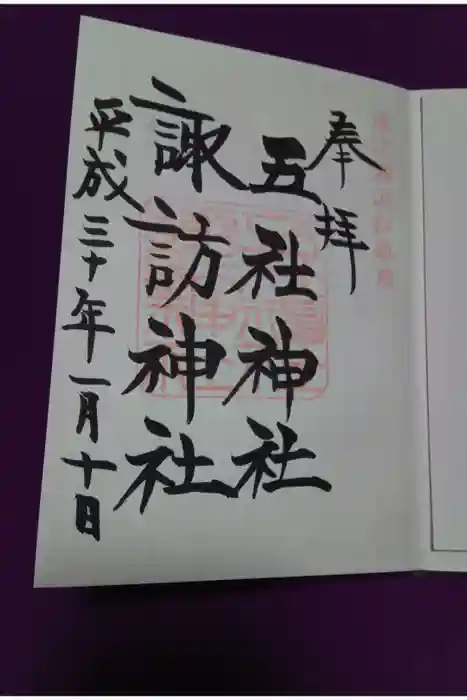 奉拝
五社神社
諏訪神社
平成三十年一月十日